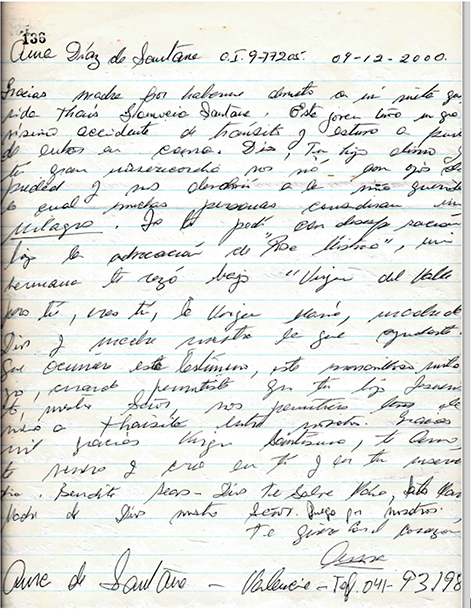 136
Díaz de Santana C.I. 9-77205. 09-12-2000.
Gracias madre por haberme a mi nieta que
rida Thais Santana. Esta joven tuvo un gra
vísimo accidente de tránsito y estuvo a punto
de entrar en coma. Dios, Tu hijo divino y
tu gran misericordia nos con ojos de
piedad y nos devolvió a la niña querida
lo cual muchas personas consideran un
milagro. Yo lo pedí con desesperación
bajo la advocación de "Rosa Mística", mi
hermana te rezó bajo "Virgen del Valle
pero tú, eres tú, la Virgen María, madre de
Dios y madre nuestra la que ayudaste.
que ocurriera este testimonio, este maravilloso mila
gro, cuando permitiste que tu hijo
nuestro Señor, nos permitiera
a Thaisita entre nosotros. Gracias
mil gracias Virgen Santísima, te amo,
te y creo en ti y en tu
. Bendita seas - Dios te Salve María,
Madre de Dios nuestro Señor. Ruega por nosotros.
Te quiero con el corazón
de Santana - Valencia - Telf. 041-93198